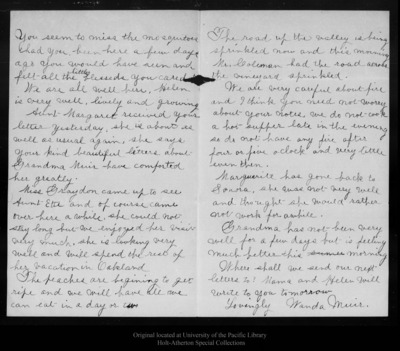 You seem to miss the mosquitoes
had you been here a few days
ago you would have seen and
felt all the little blesseds you cared
We are all well here, Helen
is very well, lively and growing
Aunt Margaret received your
letter yesterday, she is about as
well as usual again, she says
your kind beautiful letters about
Grandma Muir have comforted
her greatly.
Miss Graydon came up to see
Aunt Etta and of course came
over here a while, she could not
stay long but we enjoyed her visit
very much, she is looking very
well and will spend the rest of
her vacation in Oakland
The peaches are begining to get
ripe and we will have all we
can eat in a day or two
The road up the valley is being
sprinkled now and this morning
Mr. Coleman had the road across
the vineyard sprinkled.
We are very careful about fire
and I think you need not worry
about your notes, we do not cook
a hot supper late in the evening
so do not have any fire after
four or five o'clock and very little
even then.
Marguerite has gone back to
Sonora, she was not very well
and thought she would rather
not work for awhile.
Grandma has not been very
well for a few days but is feeling
much better this morning
Where shall we send our next
letters to? Mama and Helen will
write to you tomorrow
Lovingly Wanda Muir.
Original located at University of the Pacific Library
Holt-Atherton Special Collections